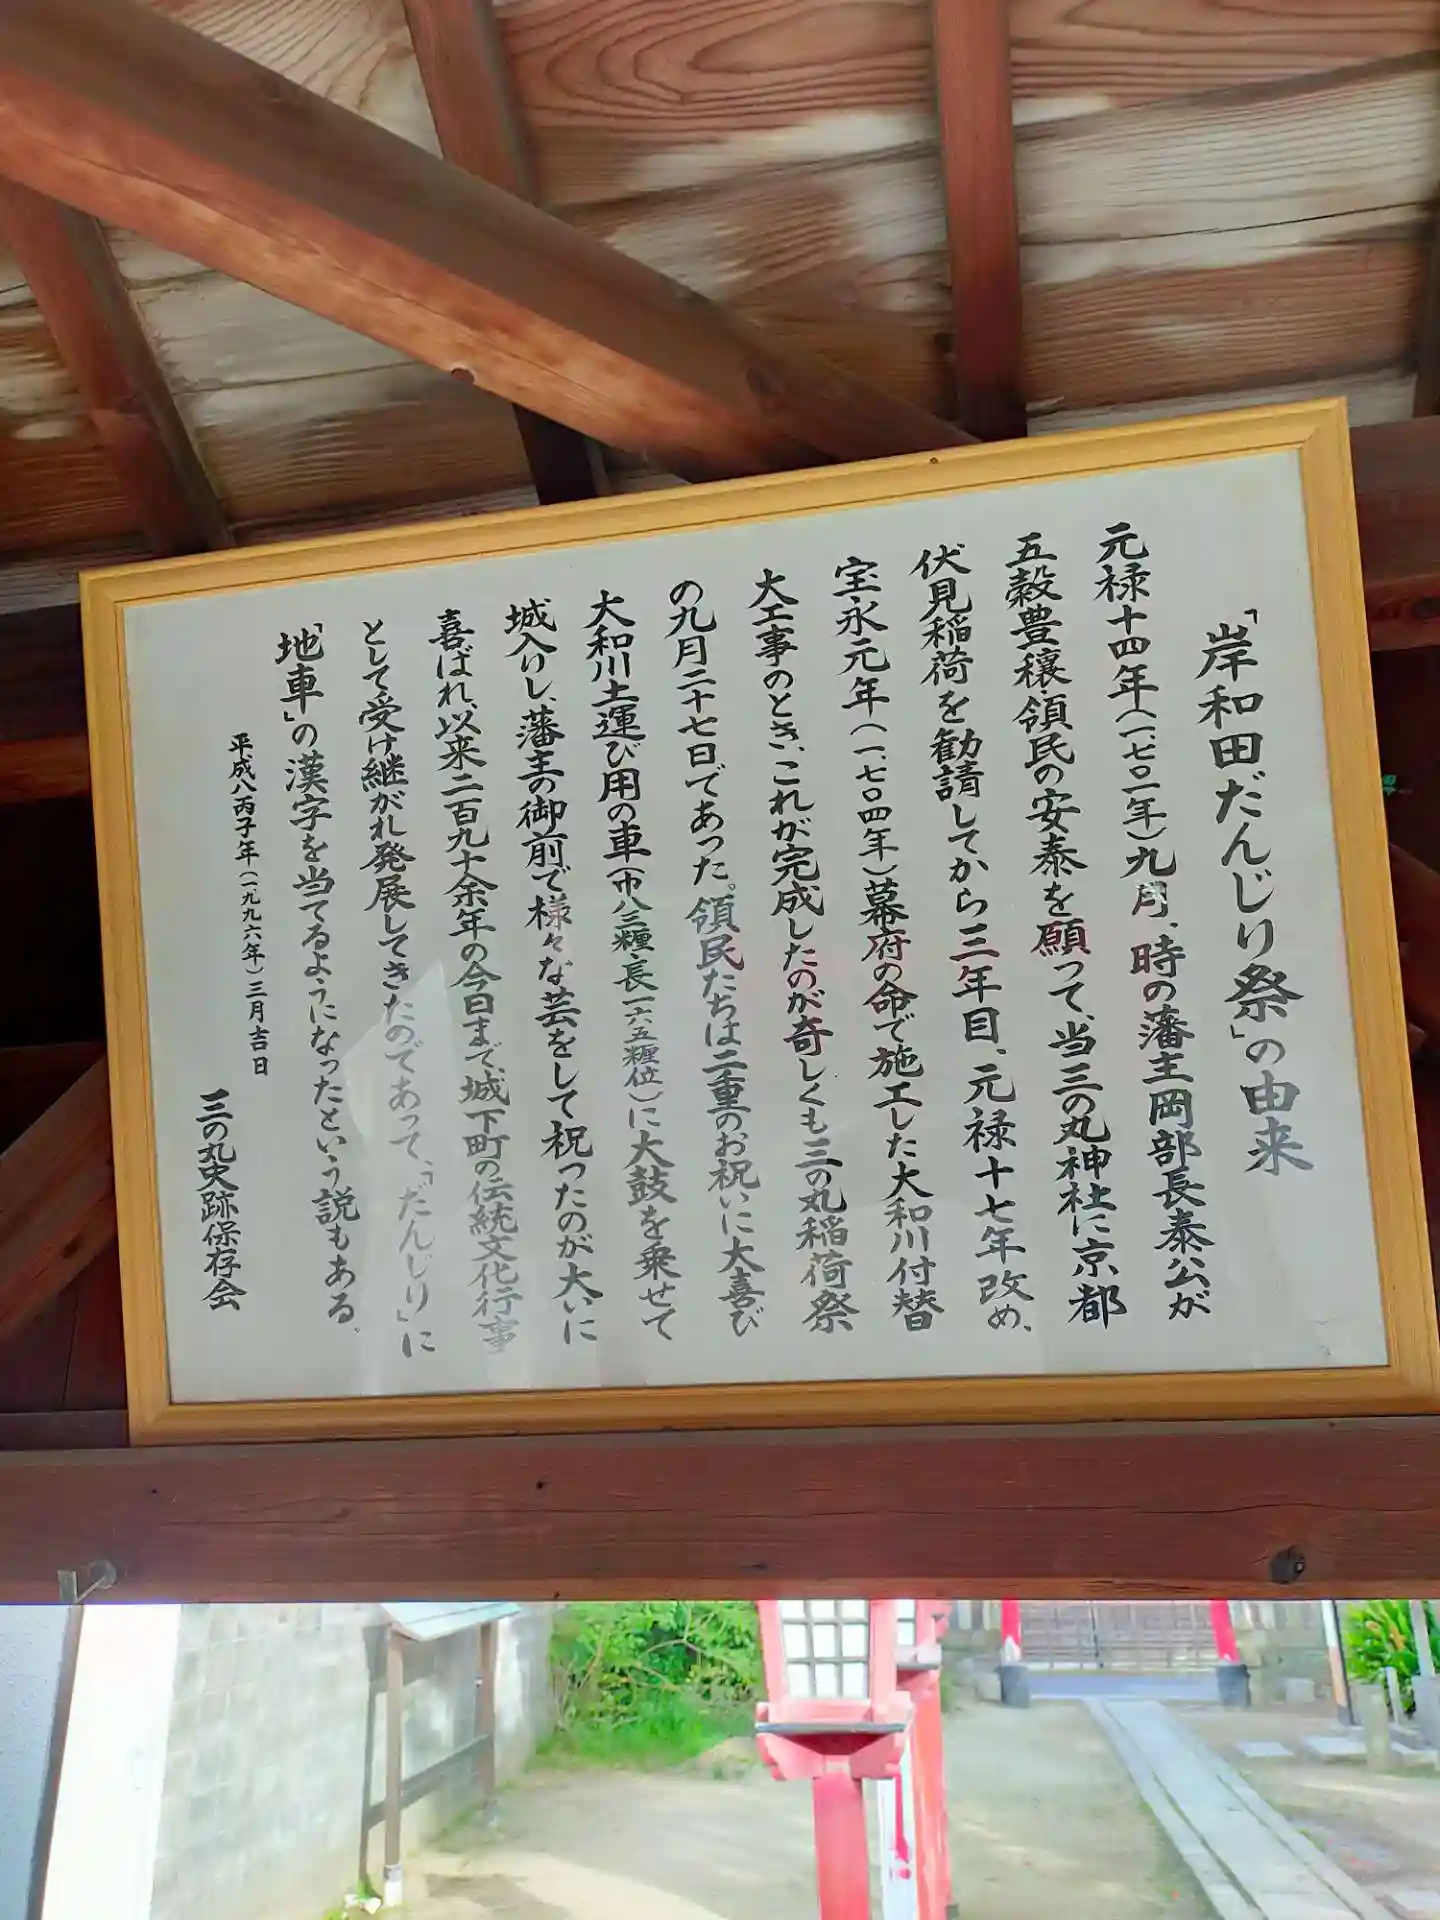 「岸和田だんじり祭」の由来
元禄十四年（一、七〇一年）九月、時の藩主岡部長泰公が
五穀豊穣、領民の安泰を願って、当三の丸神社に京都
伏見稲荷を勧請してから三年目、元禄十七年改め、
宝永元年（一、七〇四年）幕府の命で施工した大和川付替
大工事のとき、これが完成したのが奇しくも三の丸稲荷祭
の九月二十七日であった。領民たちは二重のお祝いに大喜び
大和川土運び用の車（巾八三糎、長一六五糎位）に大鼓を乗せて
城入りし、藩主の御前で様々な芸をして祝ったのが大いに
喜ばれ、以来二百九十余年の今日まで、城下町の伝統文化行事
として受け継がれ発展してきたのであって、「だんじり」に
「地車」の漢字を当てるようになったという説もある。
平成八丙子年（一九九六年）三月吉日
三の丸史跡保存会